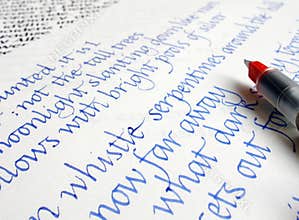 unted it si
: not the tall trees
moonlight slanting down like
llows with bright pools of silver
n whistle serpentines around the
now far away
what dark
ets out fo